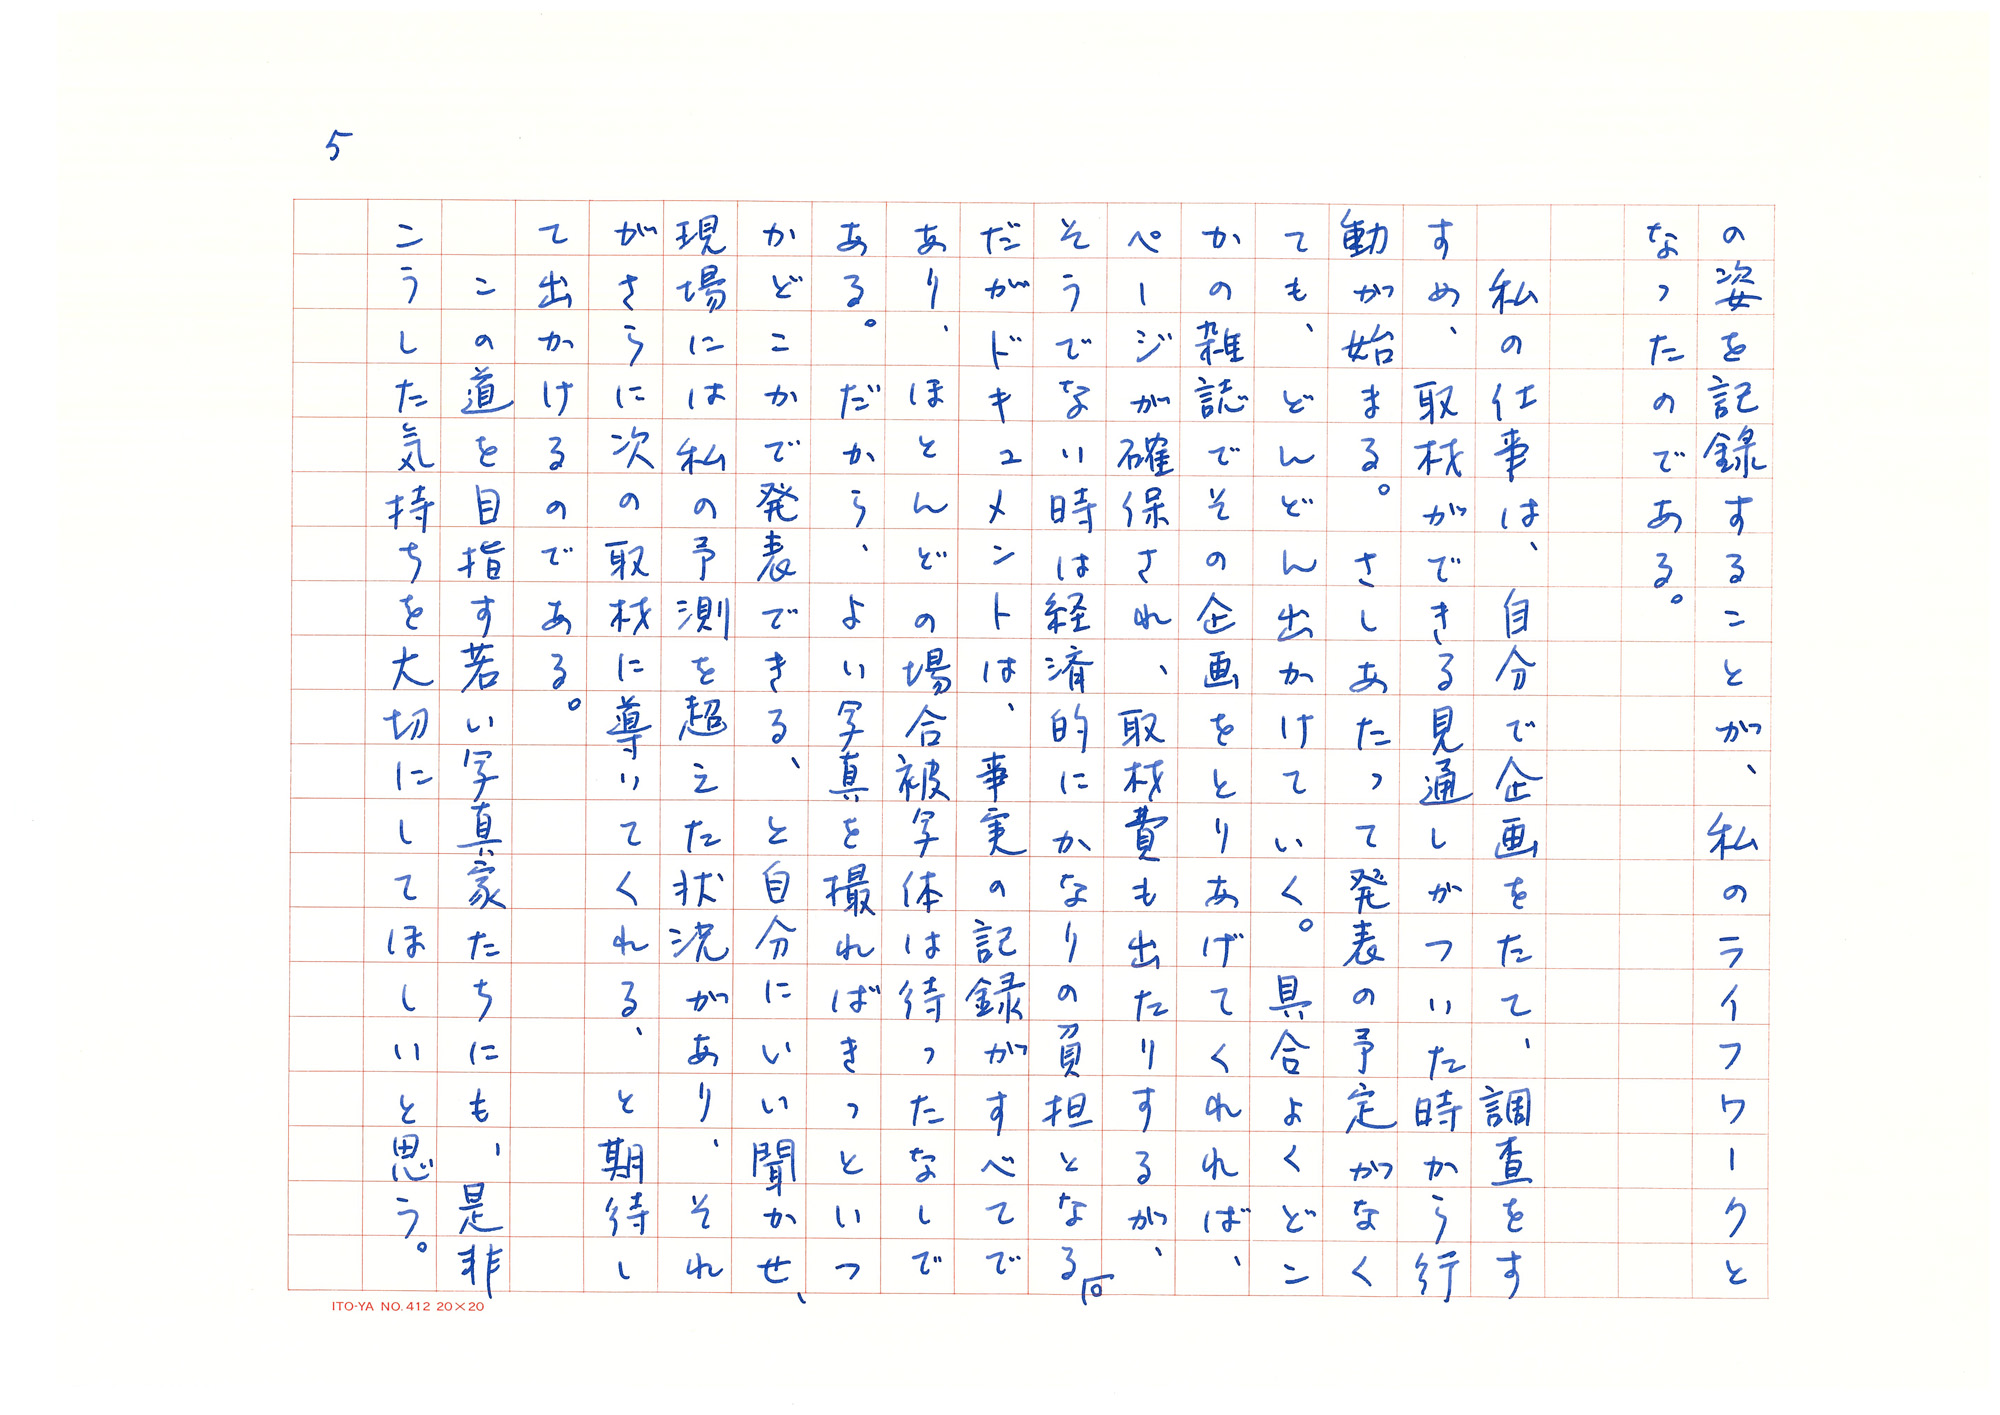 5
の姿を記録することが、私のライフワークと
なったのである。
私の仕事は、自分で企画をたて、調査をす
すめ、取材ができる見通しがついた時から行
動が始まる。さしあたって発表の予定がなく
ても、どんどん出かけていく。具合よくどこ
かの雑誌でその企画をとりあげてくれれば、
ページが確保され、取材費も出たりするが、
そうでない時は経済的にかなりの負担となる。
だがドキュメントは、事実の記録がすべてで
あり、ほとんどの場合被写体は待ったなしで
ある。だから、よい写真を撮ればきっといつ
かどこかで発表できる、と自分にいい聞かせ、
現場には私の予測を超えた状況があり、それ
がさらに次の取材に導いてくれる、と期待し
て出かけるのである。
この道を目指す若い写真家たちにも、是非
こうした気持ちを大切にしてほしいと思う。
ITO-YA NO. 412 20×20